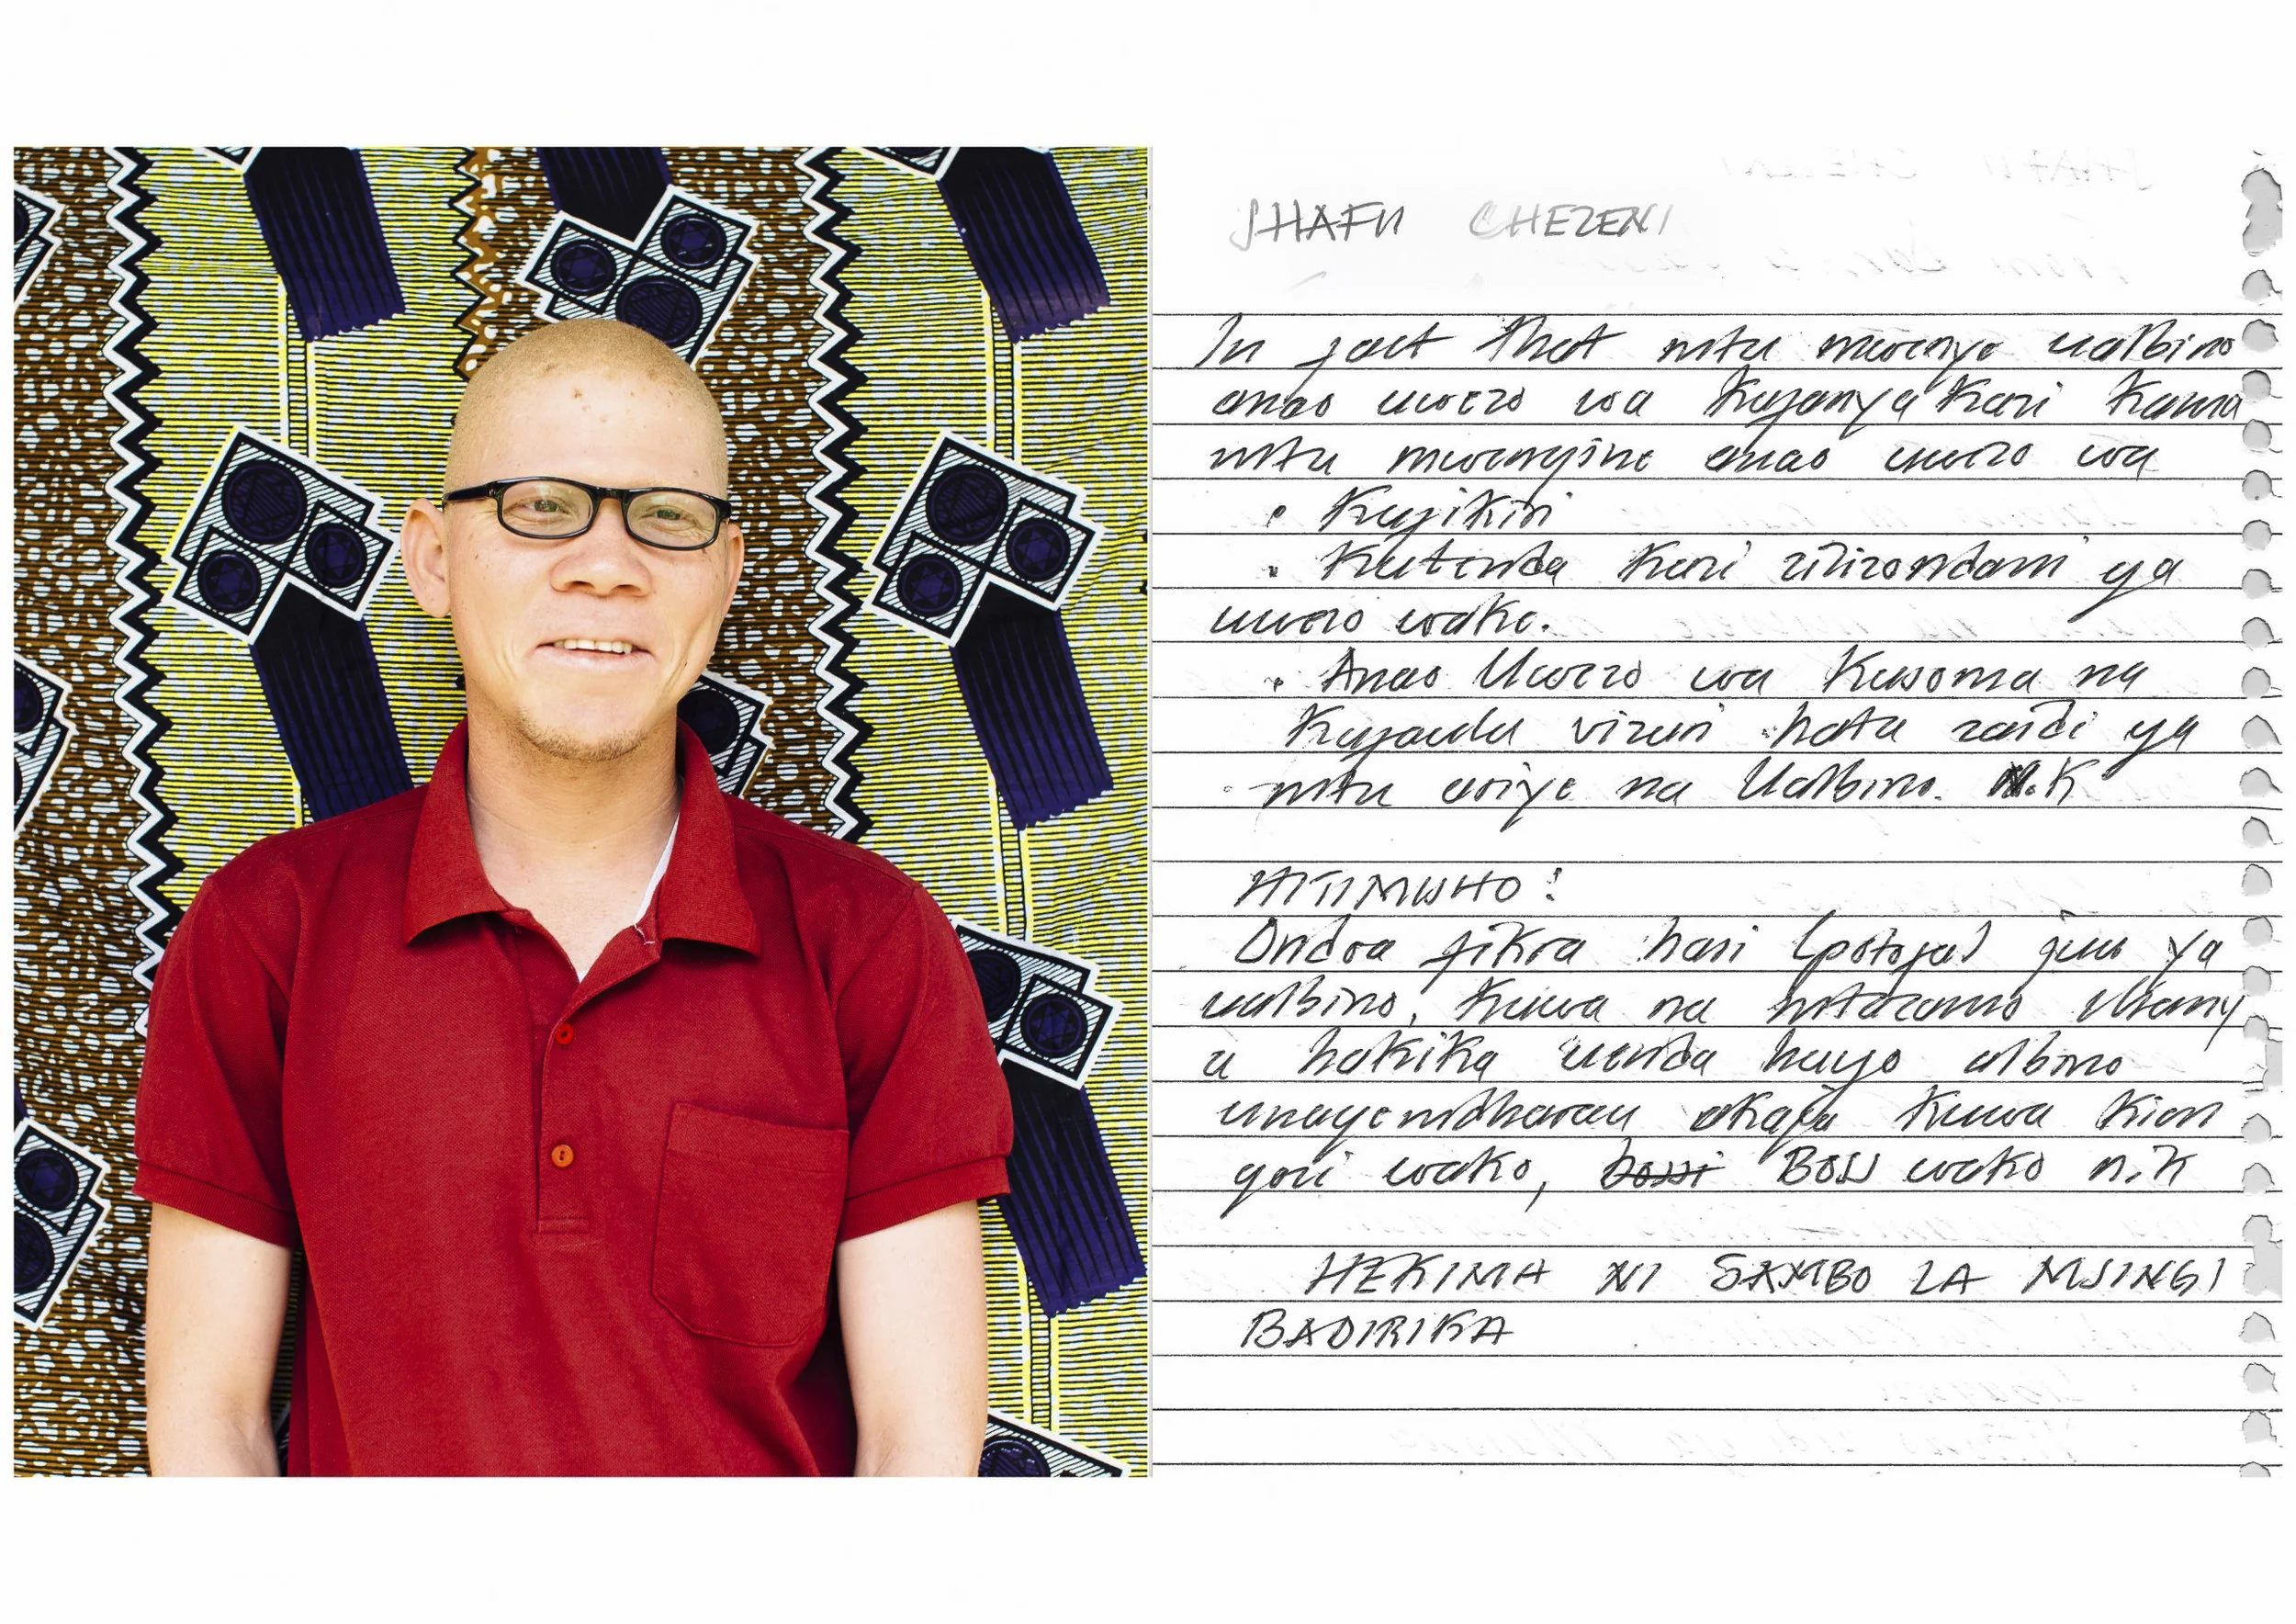 SHAFII CHEZENI
In fact that mtu mwenye ualbino
anao uwezo wa kufanya kazi kama
mtu mwengine anao uwezo wa
• Kujikiri
• Kutenda kazi zilizondani ya
uwezo wake.
• Anao Uwezo wa kusoma na
kufaulu vizuri hata zaidi ya
mtu asiye na Ualbino. N.K
HITIMISHO:
Ondoa fikra hasi (potofu) juu ya
ualbino, kuwa na mtazamo chany
a hakika uenda huyo albino
unayemdharau akaja kuwa kion
gozi wako, Boss wako n.k
HEKIMA NI JAMBO LA MSINGI
BADIRIKA